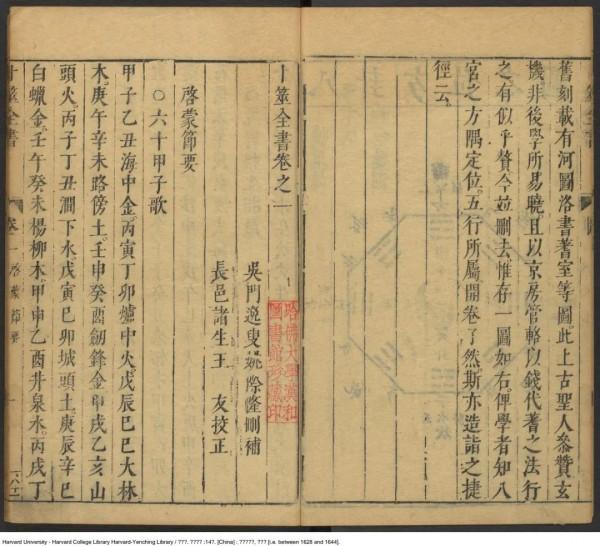 舊刻載有河圖洛書蓍室等圖此上古聖人叅贊玄
機非後學所易曉且以京房管輅以錢代蓍之法行
之有似乎贅今竝刪去惟存一圖如右俾學者知八
宮之方隅定位五行所屬開卷了然斯亦造詣之捷
徑云
卜筮全書卷之一
吳門逸叟姚際隆刪補
長邑諸生王 友挍正
哈佛大學漢和
圖書館珍藏印
啓蒙節要
○六十甲子歌
甲子乙丑海中金丙寅丁卯爐中火戊辰己巳大林
木庚午辛未路傍土壬申癸酉劒鋒金甲戌乙亥山
頭火丙子丁丑澗下水戊寅己卯城頭土庚辰辛巳
白蠟金壬午癸未楊柳木甲申乙酉井泉水丙戌丁
卜筮全書 卷一 啓蒙節要 一
Harvard University - Harvard College Library Harvard-Yenching Library / ???. ???? :14?. [China] : ?????, ??? [i.e. between 1628 and 1644].